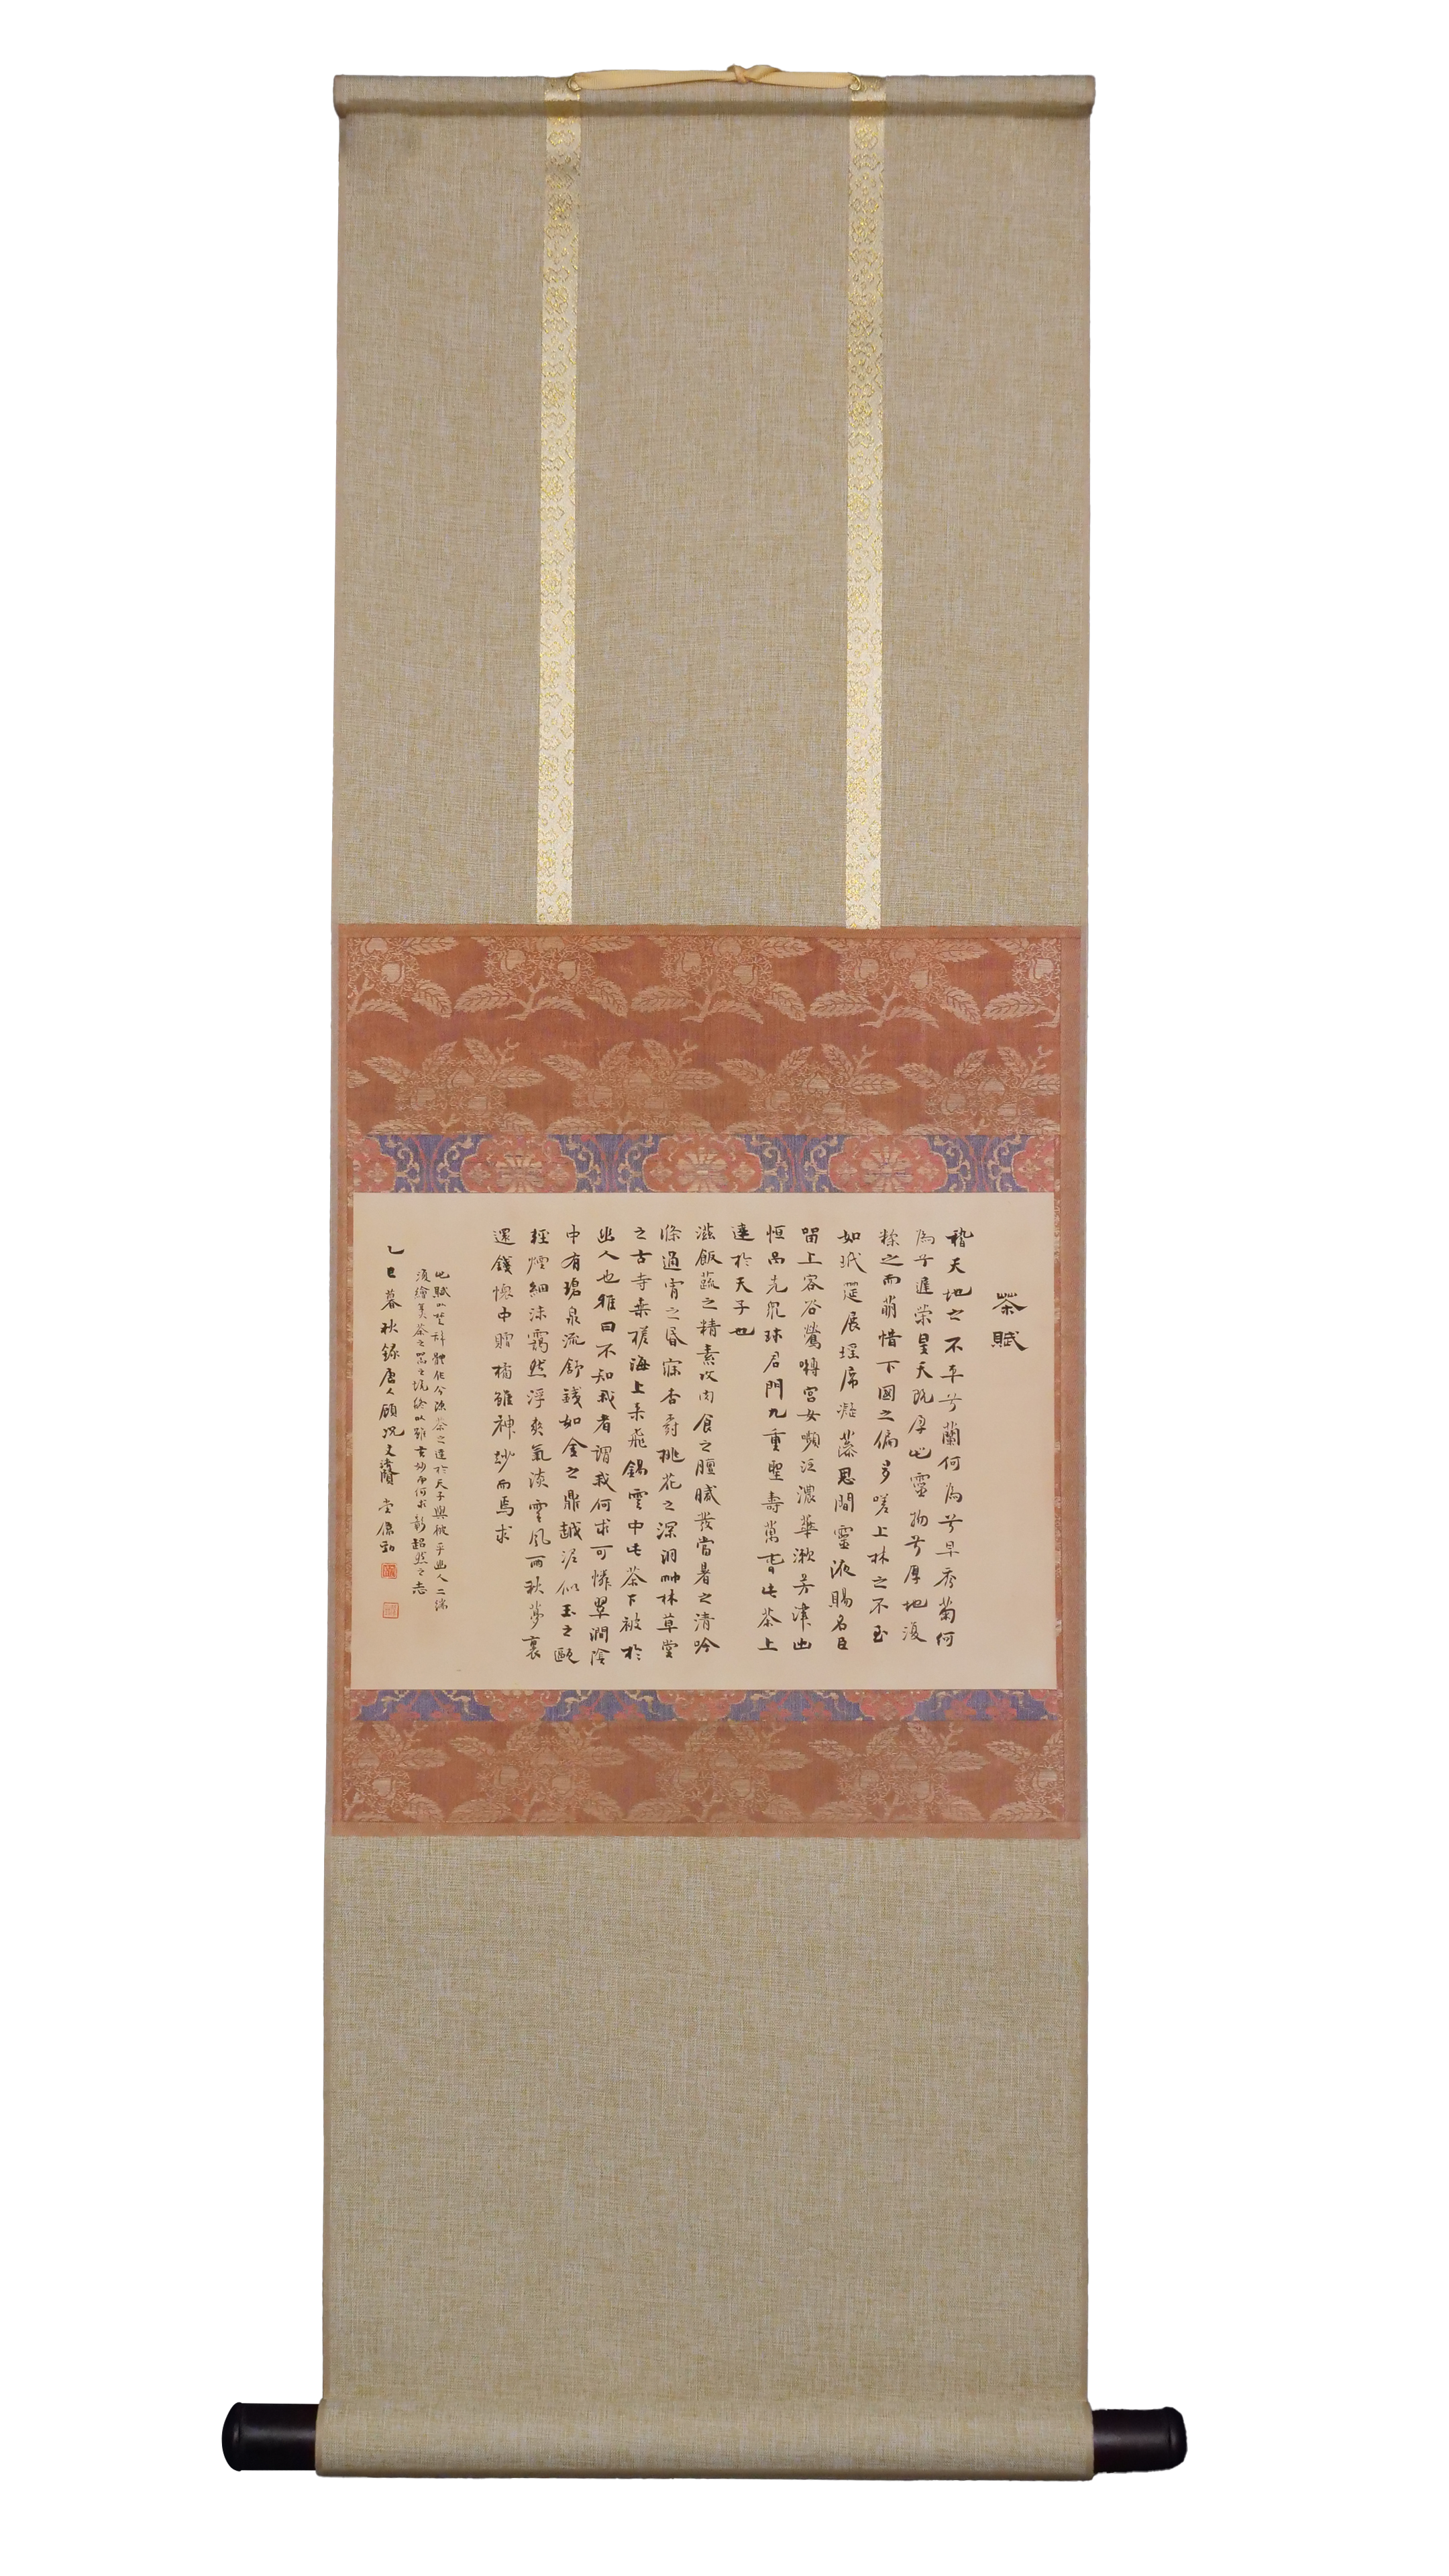 茶賦
稽天地之不平兮蘭何為兮早秀菊何
為兮遲榮皇天既孕此靈物兮厚地復
糅之而萌惜下國之偏多嗟上林之不至
如玳筵展瑤席凝藻思間靈液賜名臣
留上客谷鶯囀宮女嚬泛濃華漱芳津出
恒品先眾珍君門九重聖壽萬春此茶上
達於天子也
滋飯蔬之精素攻肉食之膻膩發當暑之清吟
滌通宵之昏寐杏樹桃花之深洞竹林草堂
之古寺乘槎海上來飛錫雲中至此茶下被於
幽人也雅曰不知我者謂我何求可憐翠澗陰
中有碧泉流舒鐵如金之鼎越泥似玉之甌
輕煙細沫靄然浮爽氣淡雲風雨秋夢裏
還錢懷中贈橘雖神妙而焉求
此賦以 體作分流茶之達於天子與被乎幽人二端
復繪美茶之器之境終以雖玄妙而何求彰超然之志
乙巳暮秋錄唐人顧況文 堂